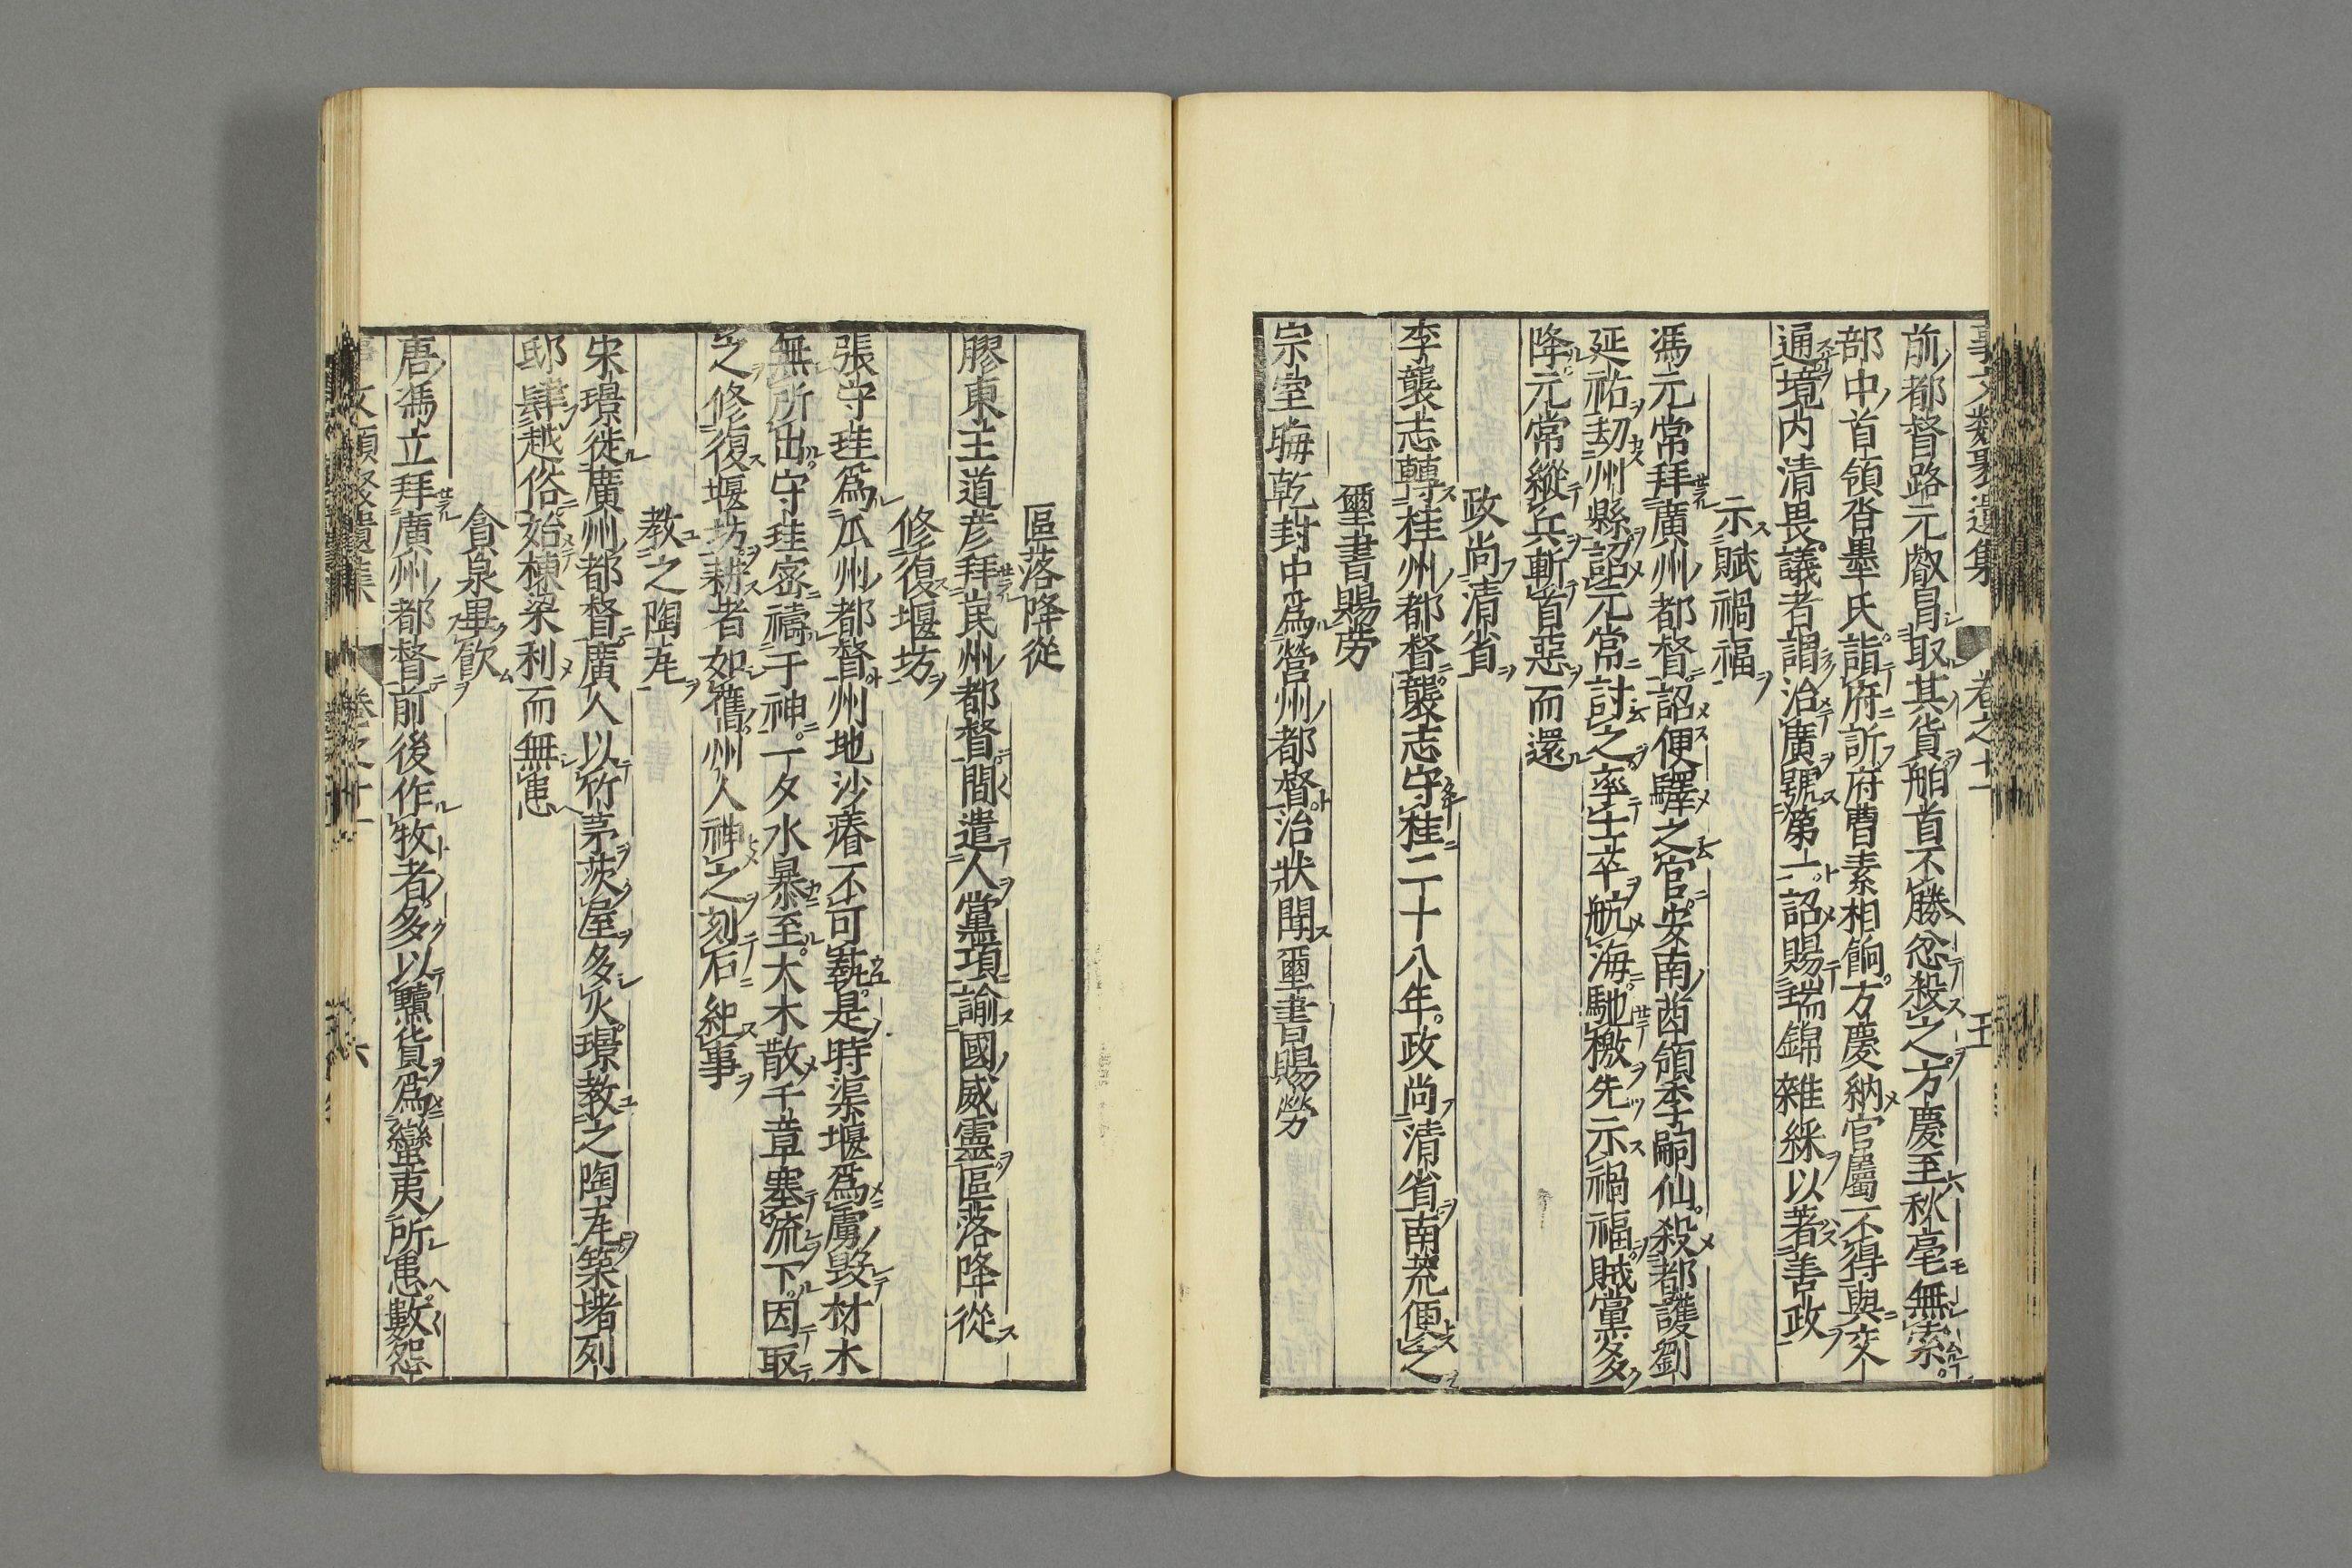 事文類聚遺集 卷之十一 五
前都督路元叡冒取其貨舶首不勝忿殺之方慶至秋毫無索
部中首領沓墨民詣府訴府曹素相餉方慶納官屬不得與交
通境内清畏議者謂治廣號第一詔賜瑞錦雜綵以著善政
示賦禍福
馮元常拜廣州都督詔便驛之官安南酋領李嗣仙殺都護劉
延祐刼州縣詔元常討之率士卒航海馳檄先示禍福賊黨多
降元常縱兵斬首惡而還
政尚清省
李襲志轉桂州都督襲志守桂二十八年政尚清省南荒便之
璽書賜劳
宗室晦乾封中爲營州都督治狀聞璽書賜勞
區落降從
膠東王道彦拜岷州都督間遣人黨項諭國威靈區落降從
修復堰坊
張守珪爲瓜州都督州地沙瘠不可蓺是時渠堰爲虜毀材木
無所出守珪密禱于神一夕水暴至大木散千章塞流下因取
之修復堰坊耕者如舊州人神之刻石紀事
教之陶瓦
宋璟徙廣州都督廣人以竹茅茨屋多火璟教之陶瓦築堵列
邸肆越俗始棟梁利而無患
貪泉畢飮
唐馮立拜廣州都督前後作牧者多以黷貨爲蠻夷所患數怨
卷之十一 六